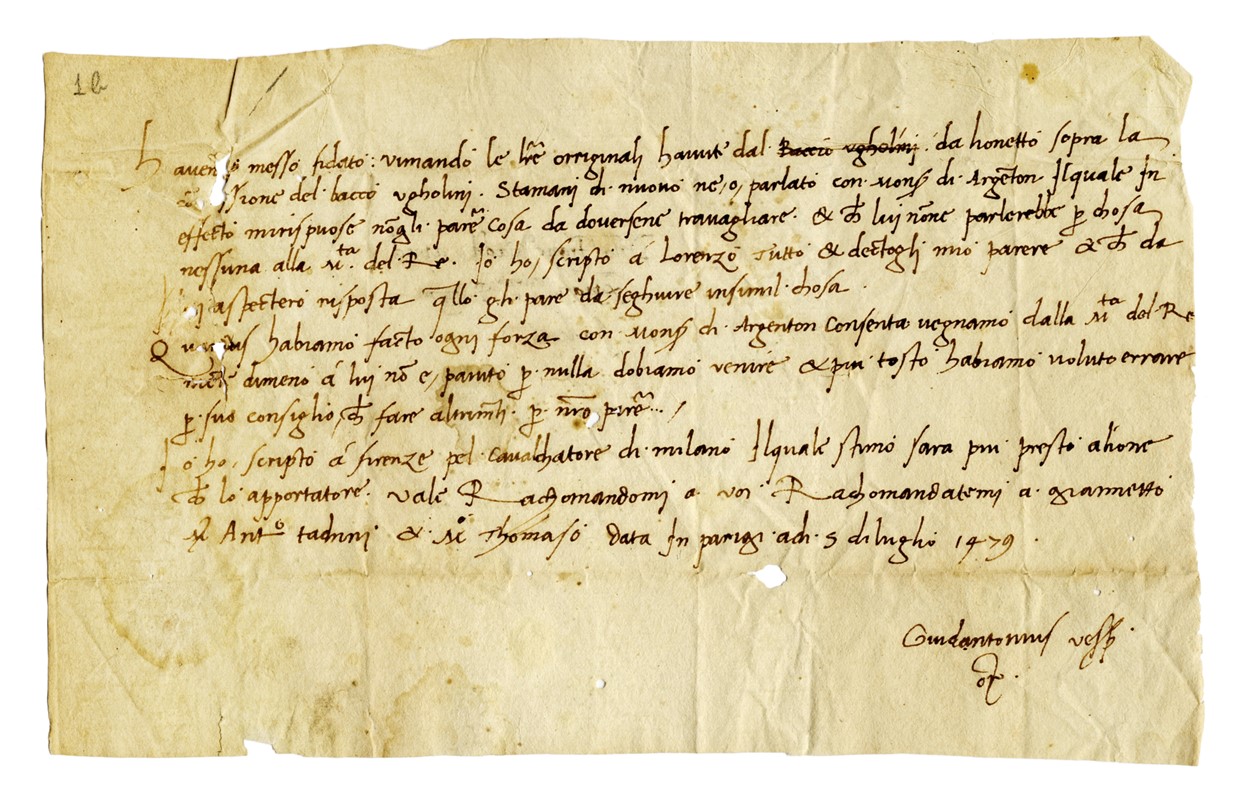 1 b
Haven messo fidato: vimando le lr̃e origínali havute dal Baccio vgholinj. da lionetto sopra la
ssione del bacco vgholini. Stamani di nuovo ne/o/ parlato con Mons di Argenton Ilquale In
effecto mirispuose nõgli parẽ Cosa da doversene travagliare. & ch lui nõne parlerebbe ꝑ chosa
nessuna alla M.ta del Re. Io ho/ scripto á Lorenzo Tutto & dectogli mio parere & ch da
aspectero risposta q̃llo gli pare da seghuire insimil chosa.
habiamo facto ogni forza con Mons di Argenton Consenta vegnamo dalla M.ta del Re
dimeno á lui nõ e/ paruto ꝑ nulla dobiamo venire & piu tosto habiamo voluto errare
ꝑ suo consiglio ch fare altrimti. ꝑ nr̃o parẽ../
Io ho/ scripto á firenze pel Cavalchatore di milano Ilquale stimo sara piu presto alione
ch lo apportatore. Vale Rachomandomi a voi Rachomandatemi a giannetto
Ant.o tadini & M.o Thomaso data In parigi adi 5 diluglio 1479.
Guidantonius vesp.
or.